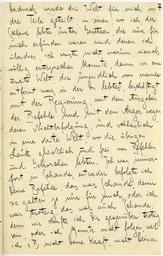 dadurch wurde die Welt für mich in
drei Teile geteilt in einen wo ich der
Sklave lebte unter Gesetzen die nur für
mich erfunden waren und denen ich
überdies, ich wusste nicht warum, niemals
völlig entsprechen konnte dann in eine
zweite Welt die unendlich von meiner
entfernt war in der Du lebtest, beschäftigt
mit der Regierung, mit dem Ausgeben
der Befehle und mit dem Ärger wegen
deren Nichtbefolgung und schliesslich
in eine dritte Welt wo die übrigen
Leute glücklich und frei von Befehlen
und Gehorchen lebten. Ich war immerfort
in Schande, entweder befolgte ich
Deine Befehle, das war Schande denn
sie galten ja nur für mich; oder ich
war trotzig, das war auch Schande
denn wie durfte ich Dir gegenüber trotzig
sein, oder ich konnte nicht folgen weil
ich z. B. nicht Deine Kraft, nicht Deinen